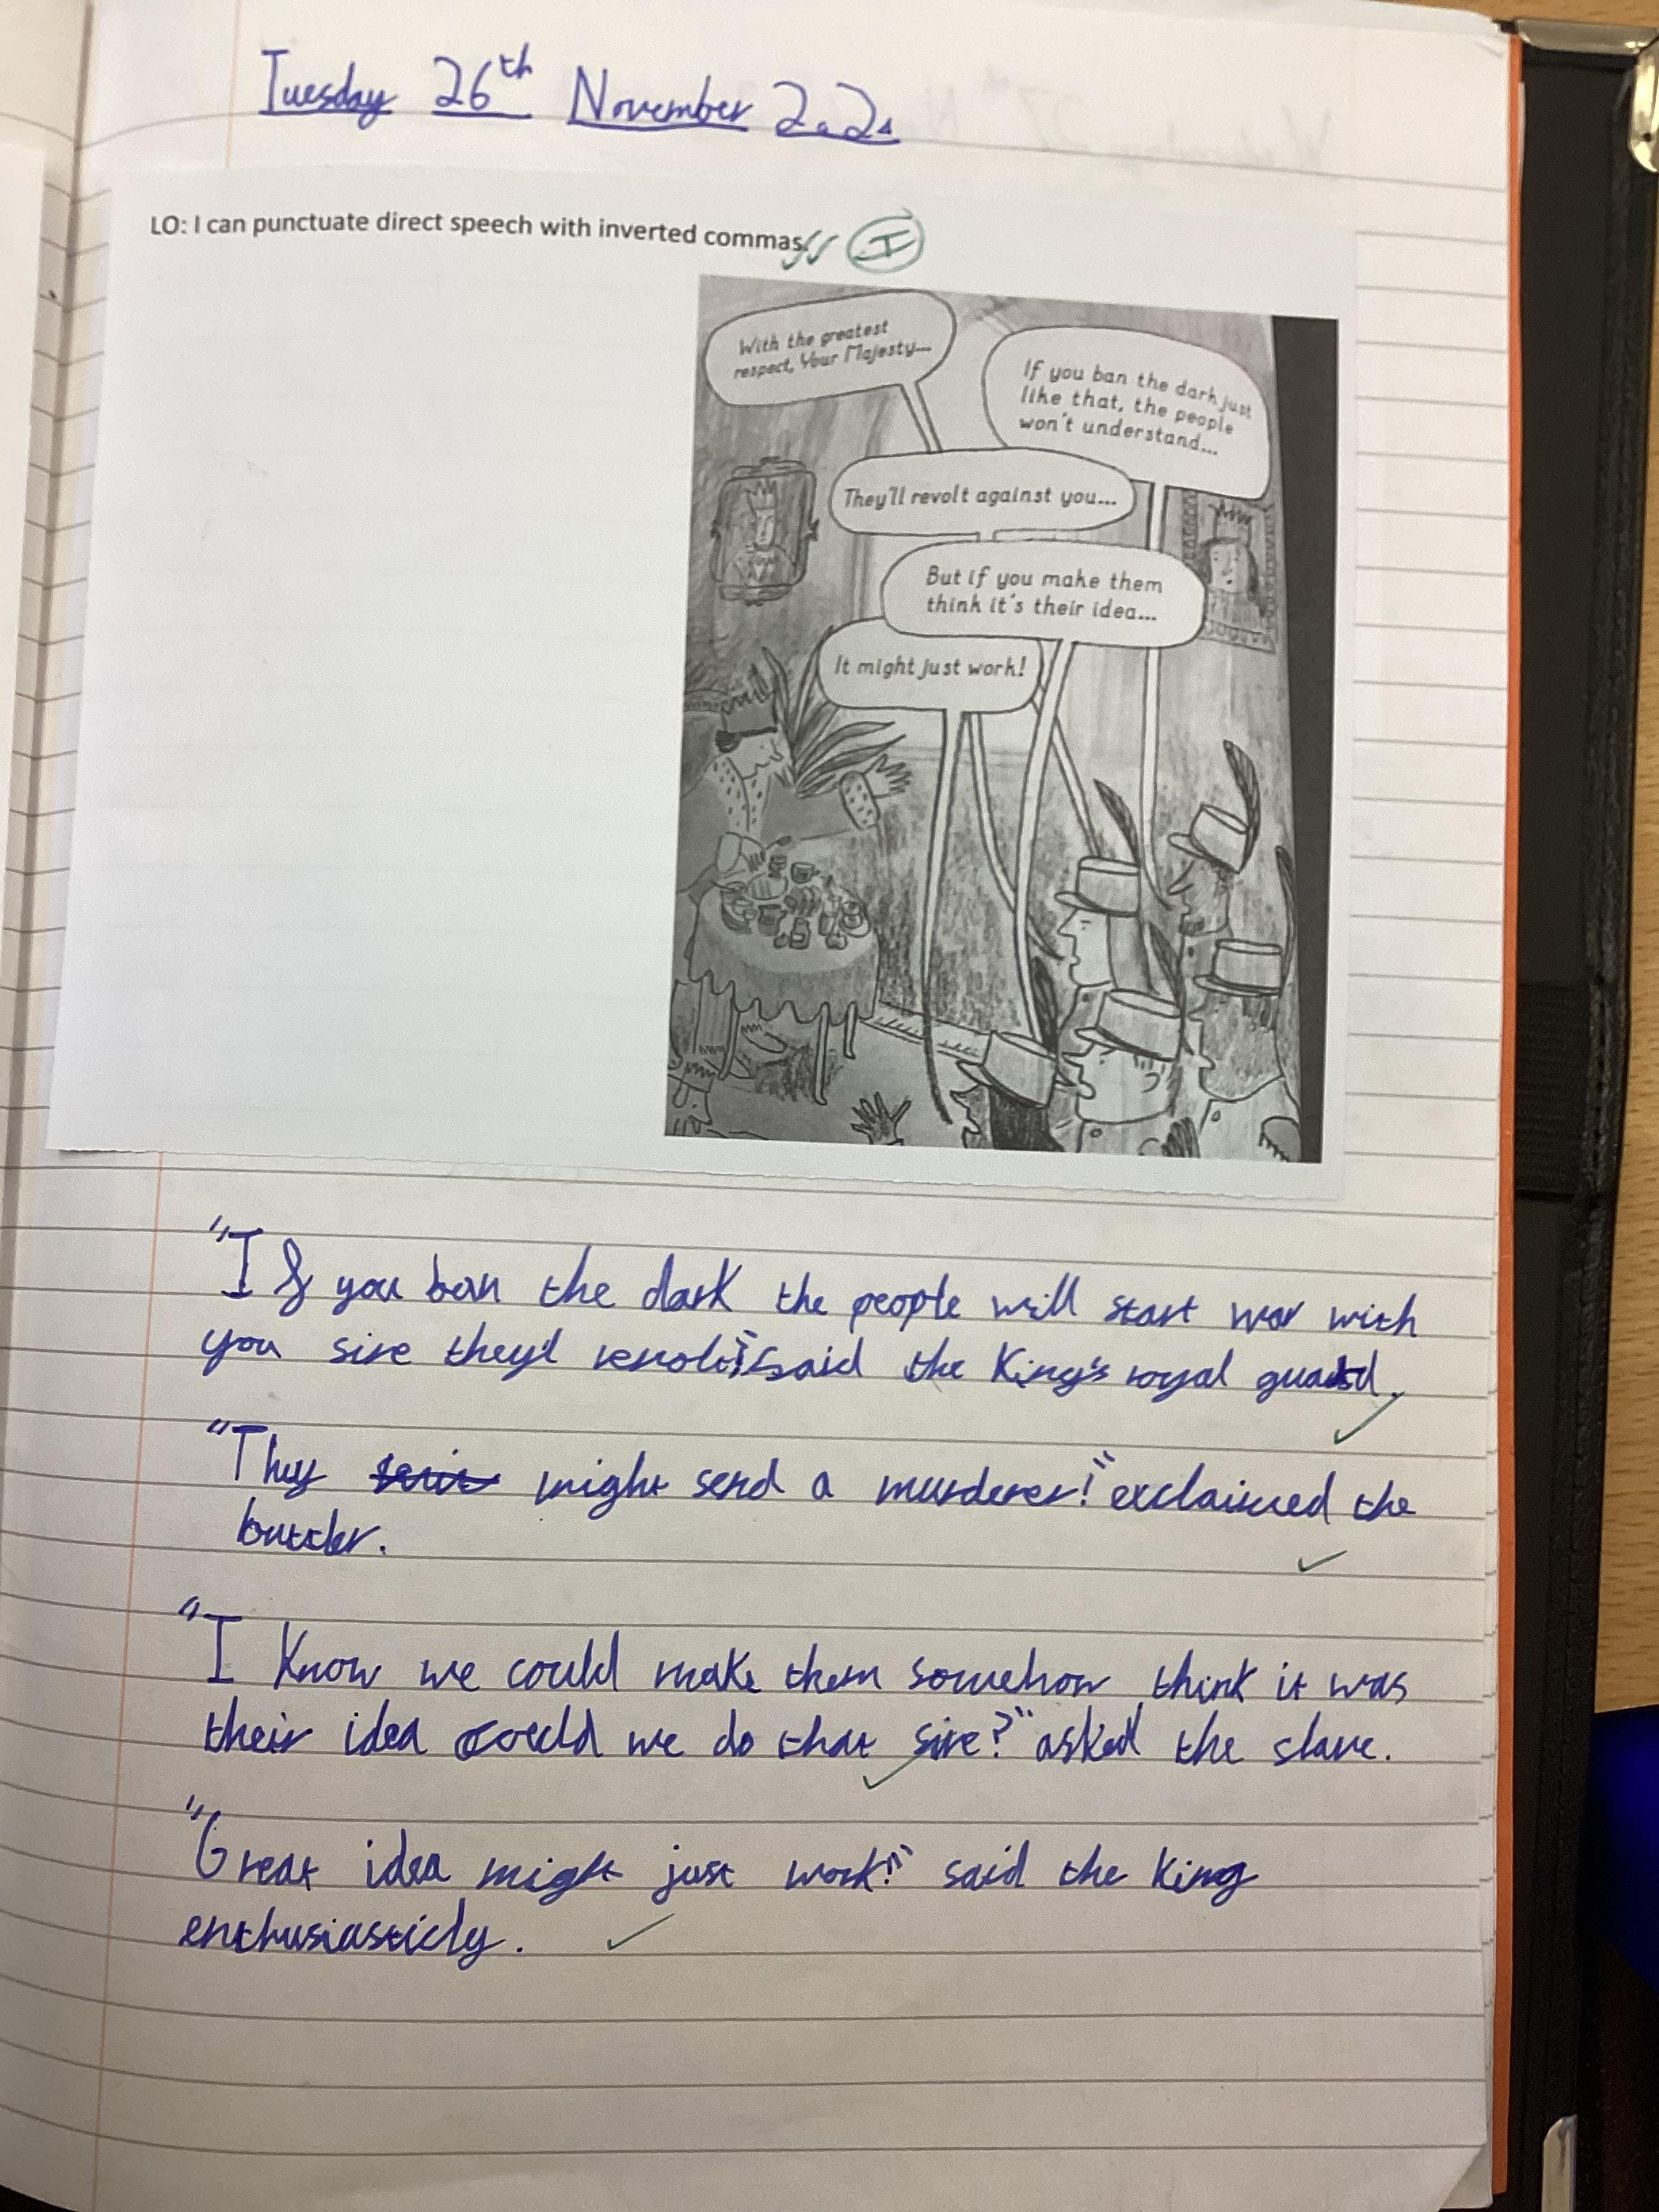 Tuesday 26th November 2024
LO: I can punctuate direct speech with inverted commas.
I
With the greatest
respect, Your Majesty...
If you ban the dark just
like that, the people
won't understand...
They'll revolt against you...
But if you make them
think it's their idea...
It might just work!
"If you ban the dark the people will start war with
you sire they'l revolt!" said the King's royal guard.
"They might send a murderer!" exclaimed the
buttler.
"I Know we could make them somehow think it was
their idea could we do that sire?" asked the slave.
"Great idea might just work!" said the King
enthusiasticly.